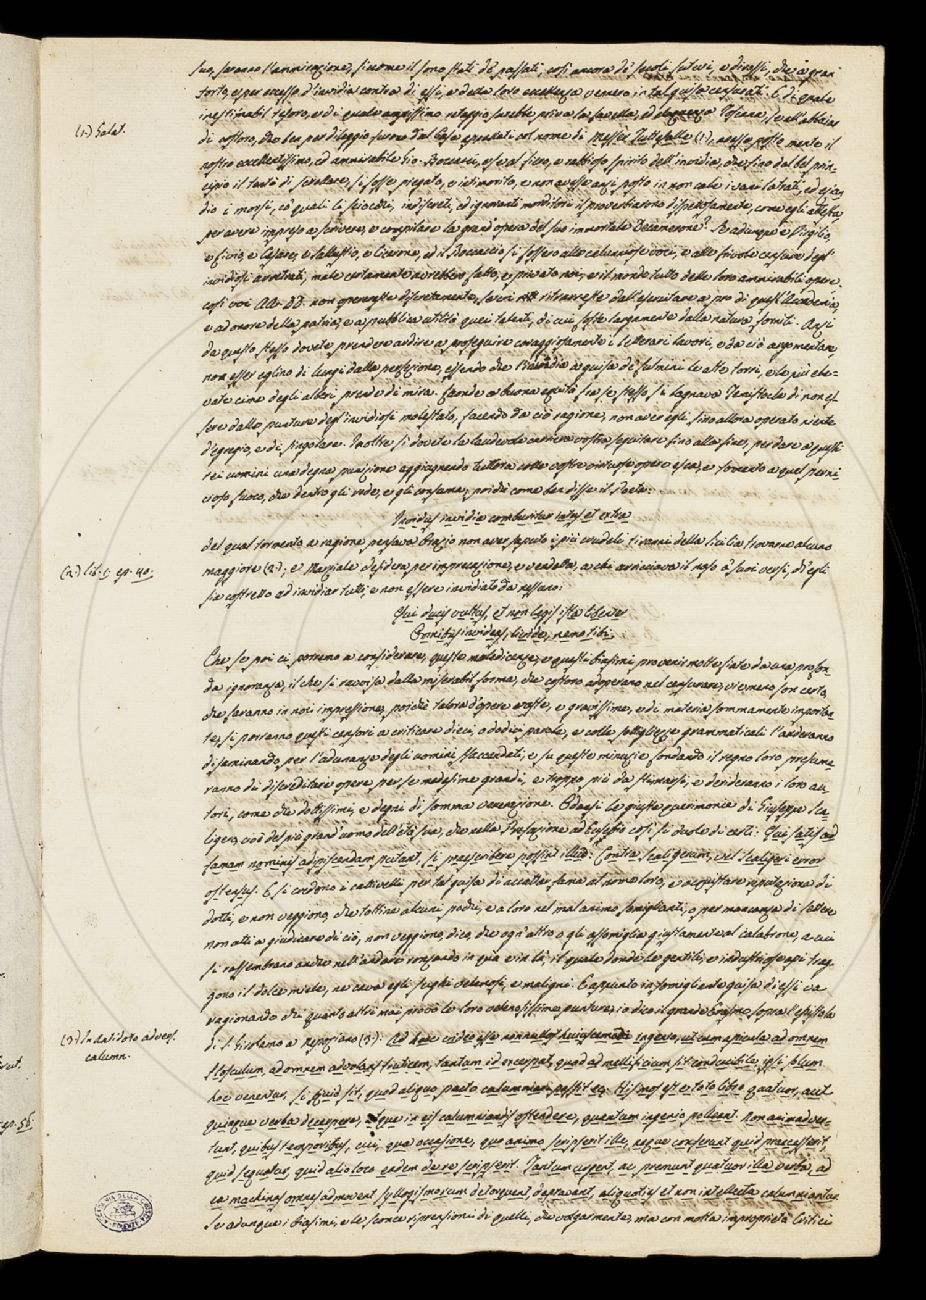 suo, saranno l'ammirazione, siccome il sono stati de' passati, così ancora de' secoli futuri, e dirassi, che a gran
torto, e per eccesso d'invidia contra di essi, e della loro eccellenza vennero in tal guisa censurati. E di quale
inestimabil tesoro, e di quale amplissimo retaggio sarebbe priva la favella, ed eloquenza Toscana, se all'abbaiar
di costoro, che ben per dileggio furono dal Casa appellati col nome di Messer Tuttesalle (1), avesse posto mente il
(1) Galat.
nostro eccellentissimo, ed ammirabile Gio. Boccacci, e se al fiero, e rabbioso spirito dell'invidia, che sino dal bel prin-
cipio il tentò di scrollare, si fosse piegato, e intimorito, e non avesse anzi posto in non cale i vani latrati, ed
i morsi, co' quali li sciocchi, indiscreti, ed ignoranti morditori il proverbiarono dispettosamente, come egli attesta,
per avere impreso a scrivere, e compilare la grand'opera del suo immortale Decamerone? Se adunque e Virgilio,
e Livio, e Cesare, e Sallustio, e Cicerone, ed il Boccaccio si fossero alle calunniose voci, e alle frivole censure degl'
invidiosi arrestati, male certamente avrebbon fatto, e privato noi, e il mondo tutto delle loro ammirabili opere,
così voi non oprereste discretamente, se vi ritraereste dall'esercitare a pro di quest'Accademia,
e ad onore della patria, e a pubblica utilità quei talenti, di cui foste largamente dalla natura forniti. Anzi
da questo stesso dovete prendere ardire a proseguire coraggiosamente i letterari lavori, e da ciò argomentare,
non esser eglino di lungi dalla perfezione, essendo che l'invidia a guisa de' fulmini le alte torri, e le più ele-
vate cime degli alberi prende di mira. Laonde a buona equità fra se stesso si lagnava Temistocle di non es-
sere dalle punture degl'invidiosi molestato, facendo da ciò ragione, non aver egli sino allora operato niente
d'egregio, e di singolare. Inoltre si dovete la laudevole carriera vostra seguitare fino alla fine, per dare a questi
rei uomini una degna punizione aggiugnendo tuttora colle vostre virtuose opere esca, e fomento a quel perni-
cioso fuoco, che dentro gli rode, e gli consuma, poiché come ben disse il Poeta:
Invidus invidia comburitur intus et extra
del qual tormento a ragione pensava Orazio non aver saputo i più crudeli tiranni della Sicilia trovarne alcuno
maggiore (2); e Marziale desidera per imprecazione, e vendetta a chi arricciava il naso a' suoi versi, ch'egli
(2) lib. 1. ep. 40.
sia costretto ad invidiar tutti, e non essere invidiato da nessuno:
Qui ducis vultus, et non legis ista libenter
Omnibus invideas, livide, nemo tibi.
Che se poi ci porremo a considerare, queste maledicenze, e questi biasimi provenir molte fiate da una profon-
da ignoranza, il che si ravvisa dalla miserabil forma, che costoro adoperano nel censurare, vie meno son certo
che faranno in noi impressione, poiché talora d'opere vaste, e gravissime, e di materia sommamente importan-
te, si porranno questi censori a criticare dieci, o dodici parole, e colle sottigliezze grammaticali l'anderanno
diseminando per l'adunanze degli uomini sfaccendati, e su queste minuzie fondando il regno loro, presume-
ranno di discreditare opere per se medesime grandi, e troppo più da stimarsi, e derideranno i loro au-
tori, come che dottissimi, e degni di somma venerazione. Odansi le giuste querimonie di Giuseppe Sca-
ligero, cioè del più grand'uomo dell'età sua, che nella Prefazione ad Eusebio così si duole di certi: Qui satis ad
famam nominis adipiscendam putant, si praescribere possint illud: Contra Scaligerum, vel Scaligeri error
ostensus. E si credono i cattivelli per tal guisa di accattar fama al nome loro, e acquistare riputazione di
dotti, e non veggiono, che toltine alcuni pochi, e a loro nel mal animo somiglianti, o per mancanza di sapere
non atti a giudicare di ciò, non veggiono, dico, che ogn'altro o gli assomiglia giustamente al calabrone, a cui
si rassembrano anche nell'andare ronzando in qua e in là, il quale donde le gentili, e industriose api trag-
gono il dolce miele, ne cava egli sughi velenosi, e maligni. E appunto in somigliante guisa di essi va
ragionando chi quant'altri mai provò le loro velenosissime punture, io dico il grande Erasmo sopra l'epistola
di S. Girolamo a Nepoziano (3). Ad hoc
(3) In Antidoto advers.
calumn.
ingenio, ut cum apicula ad omnem
flosculum, ad omnem advolans fruticem, tantum id excerpat, quod ad mellificium sit conducibile, ipsi solum
hoc venentur, si quid sit, quod aliquo pacto calumniari possit &c. His mos est e toto libro quatuor, aut
quinque verba decerpere, atque in eis calumniandis ostendere, quantum ingenio polleant. Non animadver-
tunt, quibus temporibus, cui, qua occasione, quo animo scripserit ille, neque conferunt quid praecesserit,
quid sequatur, quid alio loco eadem de re scripserit. Tantum urgent, ac premunt quatuor illa verba, ad
ea machinas omnes admovent syllogismorum detorquent, depravant, aliquoties et non intellecta calumniantur
Se adunque i biasimi, e le sconce riprensioni di quelli, che volgarmente, ma con molta improprietà Critici
ep. 56.